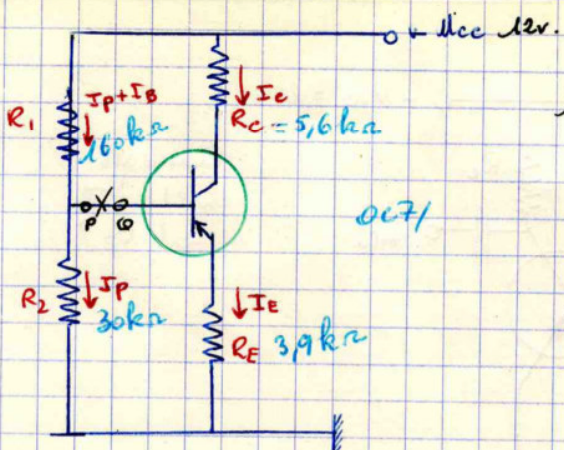 + Ucc 12v.
R1
Ip+IB
160kΩ
Ic
Rc = 5,6kΩ
P Q
OC71
R2
Ip
30kΩ
IE
RE 3,9kΩ